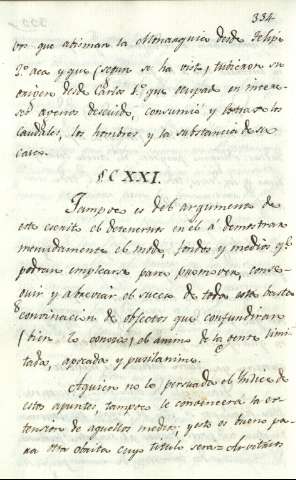 334
que arruinan la Monarquia desde Felipe
2.º aca y que (segun se ha visto) tubieron su
origen desde Carlos 1.º que ocupad en
agenos descuidó, consumió y los
caudales, los hombres y la substancia de su
casa.
§ CXXI.
Tampoco es del argumento de
este escrito el detenernos en el á demostrar
menudamente el modo, fondos y medios q.e
podran emplearse para promover, conse-
guir y abreviar el suceso de toda esta basta
convinacion de objectos que confundiran
(bien lo conosco) el animo de la gente limi-
tada, apocada y pusilanime.
Aquien no lo persuada el Yndice de
estos apuntes, tampoco le convencera la ex-
tension de aquellos medios; y esto es bueno pa-
ra otra obrita cuyo titulo sera = Arvitrios